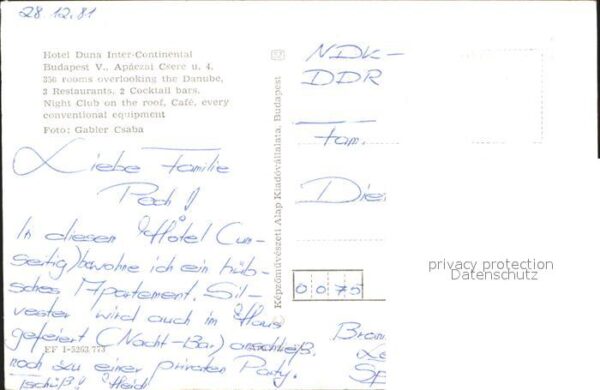 28.12.81
Hotel Duna Inter-Continental
Budapest V., Apáczai Csere u. 4.
356 rooms overlooking the Danube,
3 Restaurants, 2 Cocktail bars.
Night Club on the roof, Café, every
conventional equipment
Foto: Gabler Csaba
Liebe Familie
Poch!
In diesem Hotel (um-
seitig) bewohne ich ein hüb-
sches Apartement. Sil-
vester wird auch im Haus
gefeiert (Nacht-Bar) anschließ.
noch zu einer privaten Party.
Tschüß! Heidi
EF I-5263 773
Képzőművészeti Alap Kiadóvállalata, Budapest
NDK-
DDR
Fam.
Die
privacy protection
Datenschutz
0 0 7 5